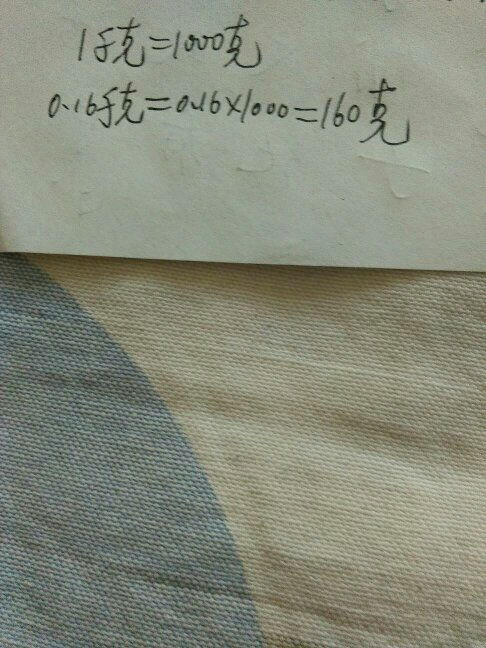 1千克=1000克
0.16千克=0.16×1000=160克